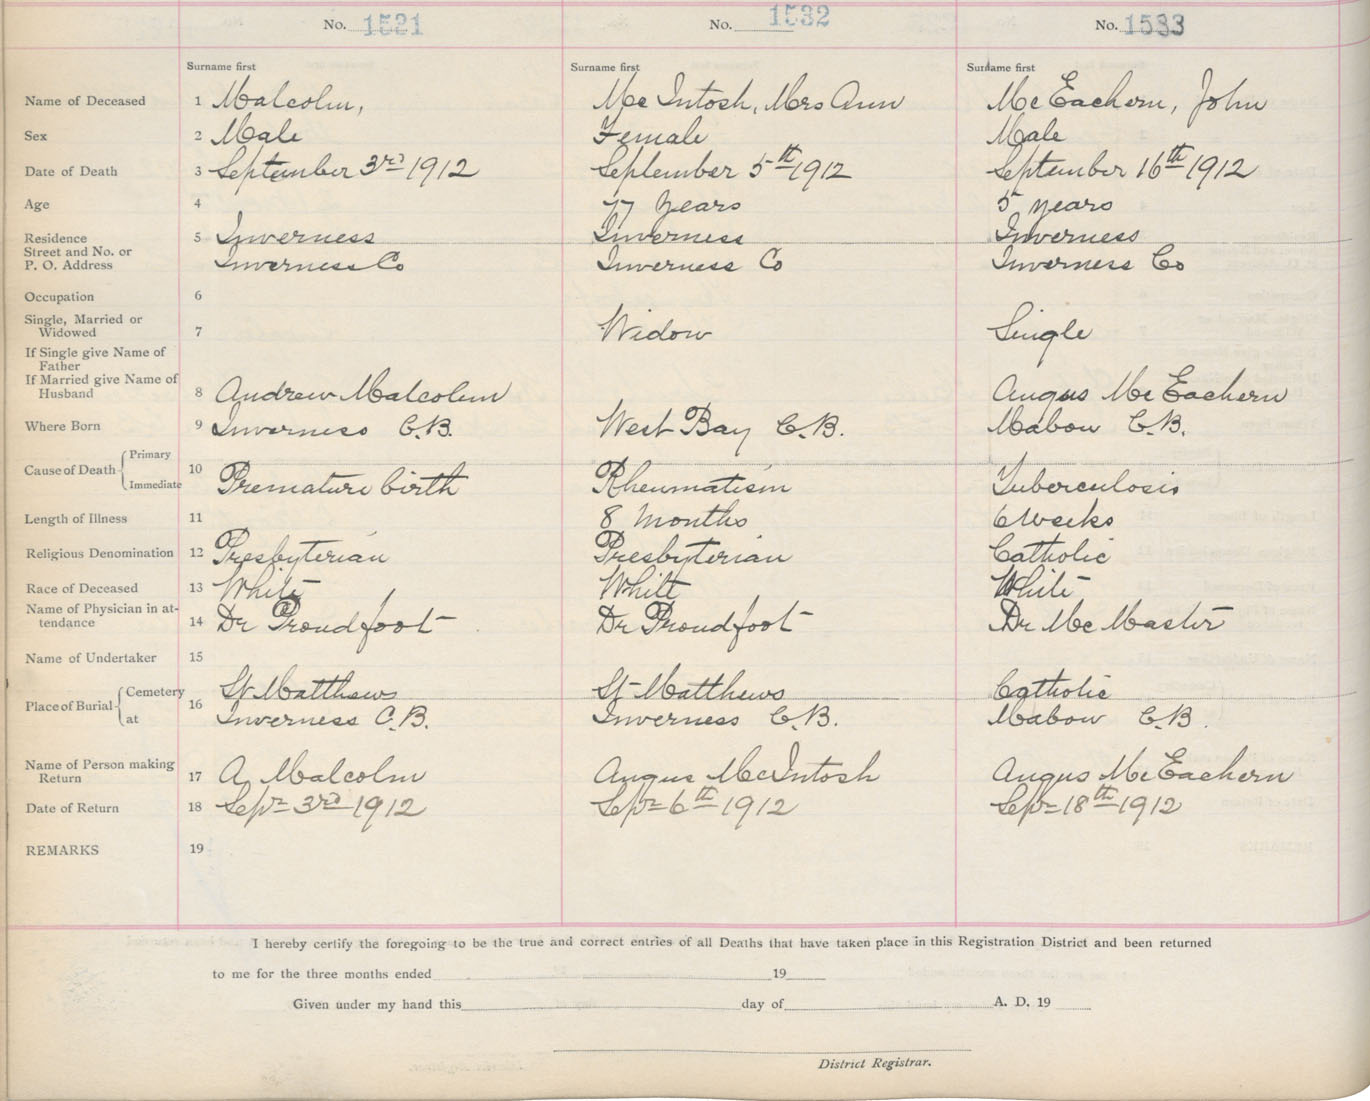 No. 1521 No. 1532 No. 1533
Surname first Surname first Surname first
Name of Deceased 1 Malcolm, Mc Intosh, Mrs Ann Mc Eachern, John
Sex 2 Male Female Male
Date of Death 3 September 3rd 1912 September 5th 1912 September 16th 1912
Age 4 77 years 5 years
Residence 5 Inverness Inverness Inverness
Street and No. or
P. O. Address Inverness Co Inverness Co Inverness Co
Occupation 6
Single, Married or
Widowed 7 Widow Single
If Single give Name of
Father
If Married give Name of
Husband 8 Andrew Malcolm Angus Mc Eachern
Where Born 9 Inverness C.B. West Bay C.B. Mabow C.B.
Cause of Death Primary
10
Immediate Premature birth Rheumatism Tuberculosis
Length of Illness 11 8 months 6 Weeks
Religious Denomination 12 Presbyterian Presbyterian Catholic
Race of Deceased 13 White White White
Name of Physician in at-
tendance 14 Dr Proudfoot Dr Proudfoot Dr Mc Master
Name of Undertaker 15
Place of Burial Cemetery 16 St Matthews St Matthews Catholic
at Inverness C.B. Inverness C.B. Mabow C.B.
Name of Person making
Return 17 A. Malcolm Angus McIntosh Angus Mc Eachern
Date of Return 18 Sept 3rd 1912 Sept 6th 1912 Sept 18th 1912
REMARKS 19
I hereby certify the foregoing to be the true and correct entries of all Deaths that have taken place in this Registration District and been returned
to me for the three months ended 19
Given under my hand this day of A. D. 19
District Registrar.